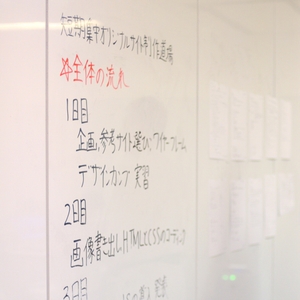 短期集中オリジナルサイト制作道場
☆全体の流れ
1日目
企画、参考サイト選び、ワイヤーフレーム、
デザインカンプ 実習
2日目
画像書き出し HTMLとCSSのコーディング
3日目